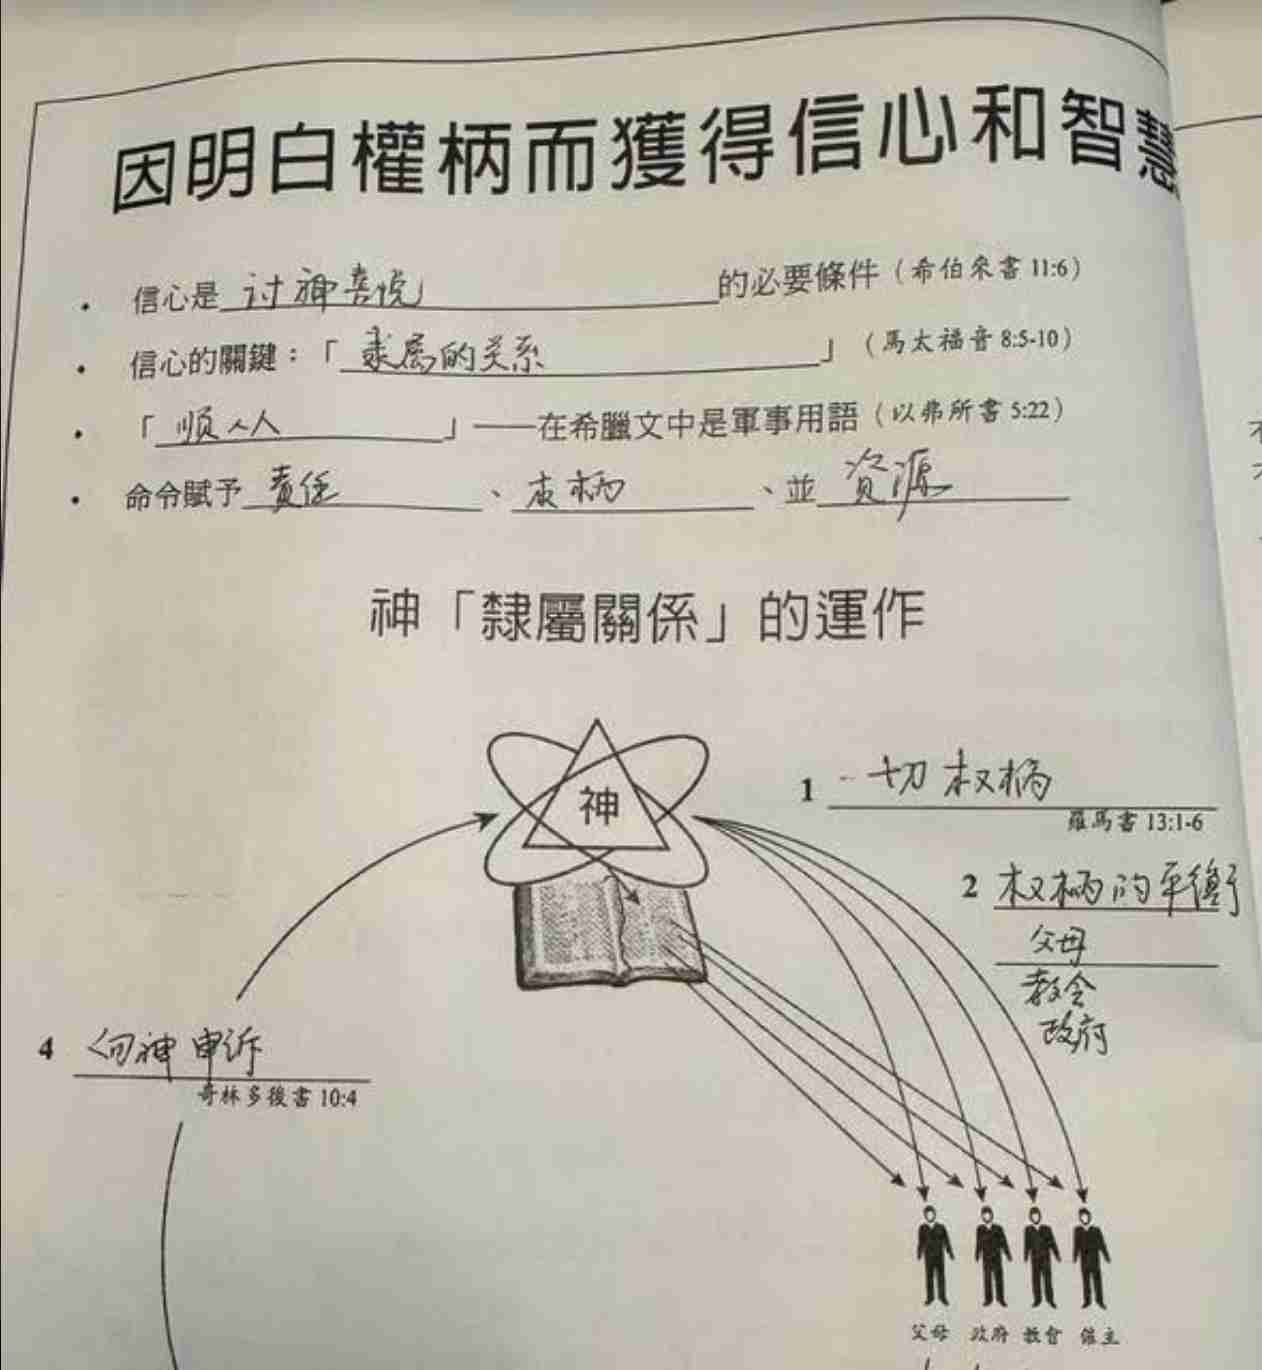 因明白權柄而獲得信心和智慧
• 信心是 讨神喜悦 的必要條件（希伯來書 11:6）
• 信心的關鍵：「隶属的关系」（馬太福音 8:5-10）
• 「顺从」——在希臘文中是軍事用語（以弗所書 5:22）
• 命令賦予 責任、权柄、並 資源
神「隸屬關係」的運作
神
1 一切权柄
羅馬書 13:1-6
2 权柄的平衡
父母
教会
政府
4 向神申诉
哥林多後書 10:4
父母 政府 教會 僱主